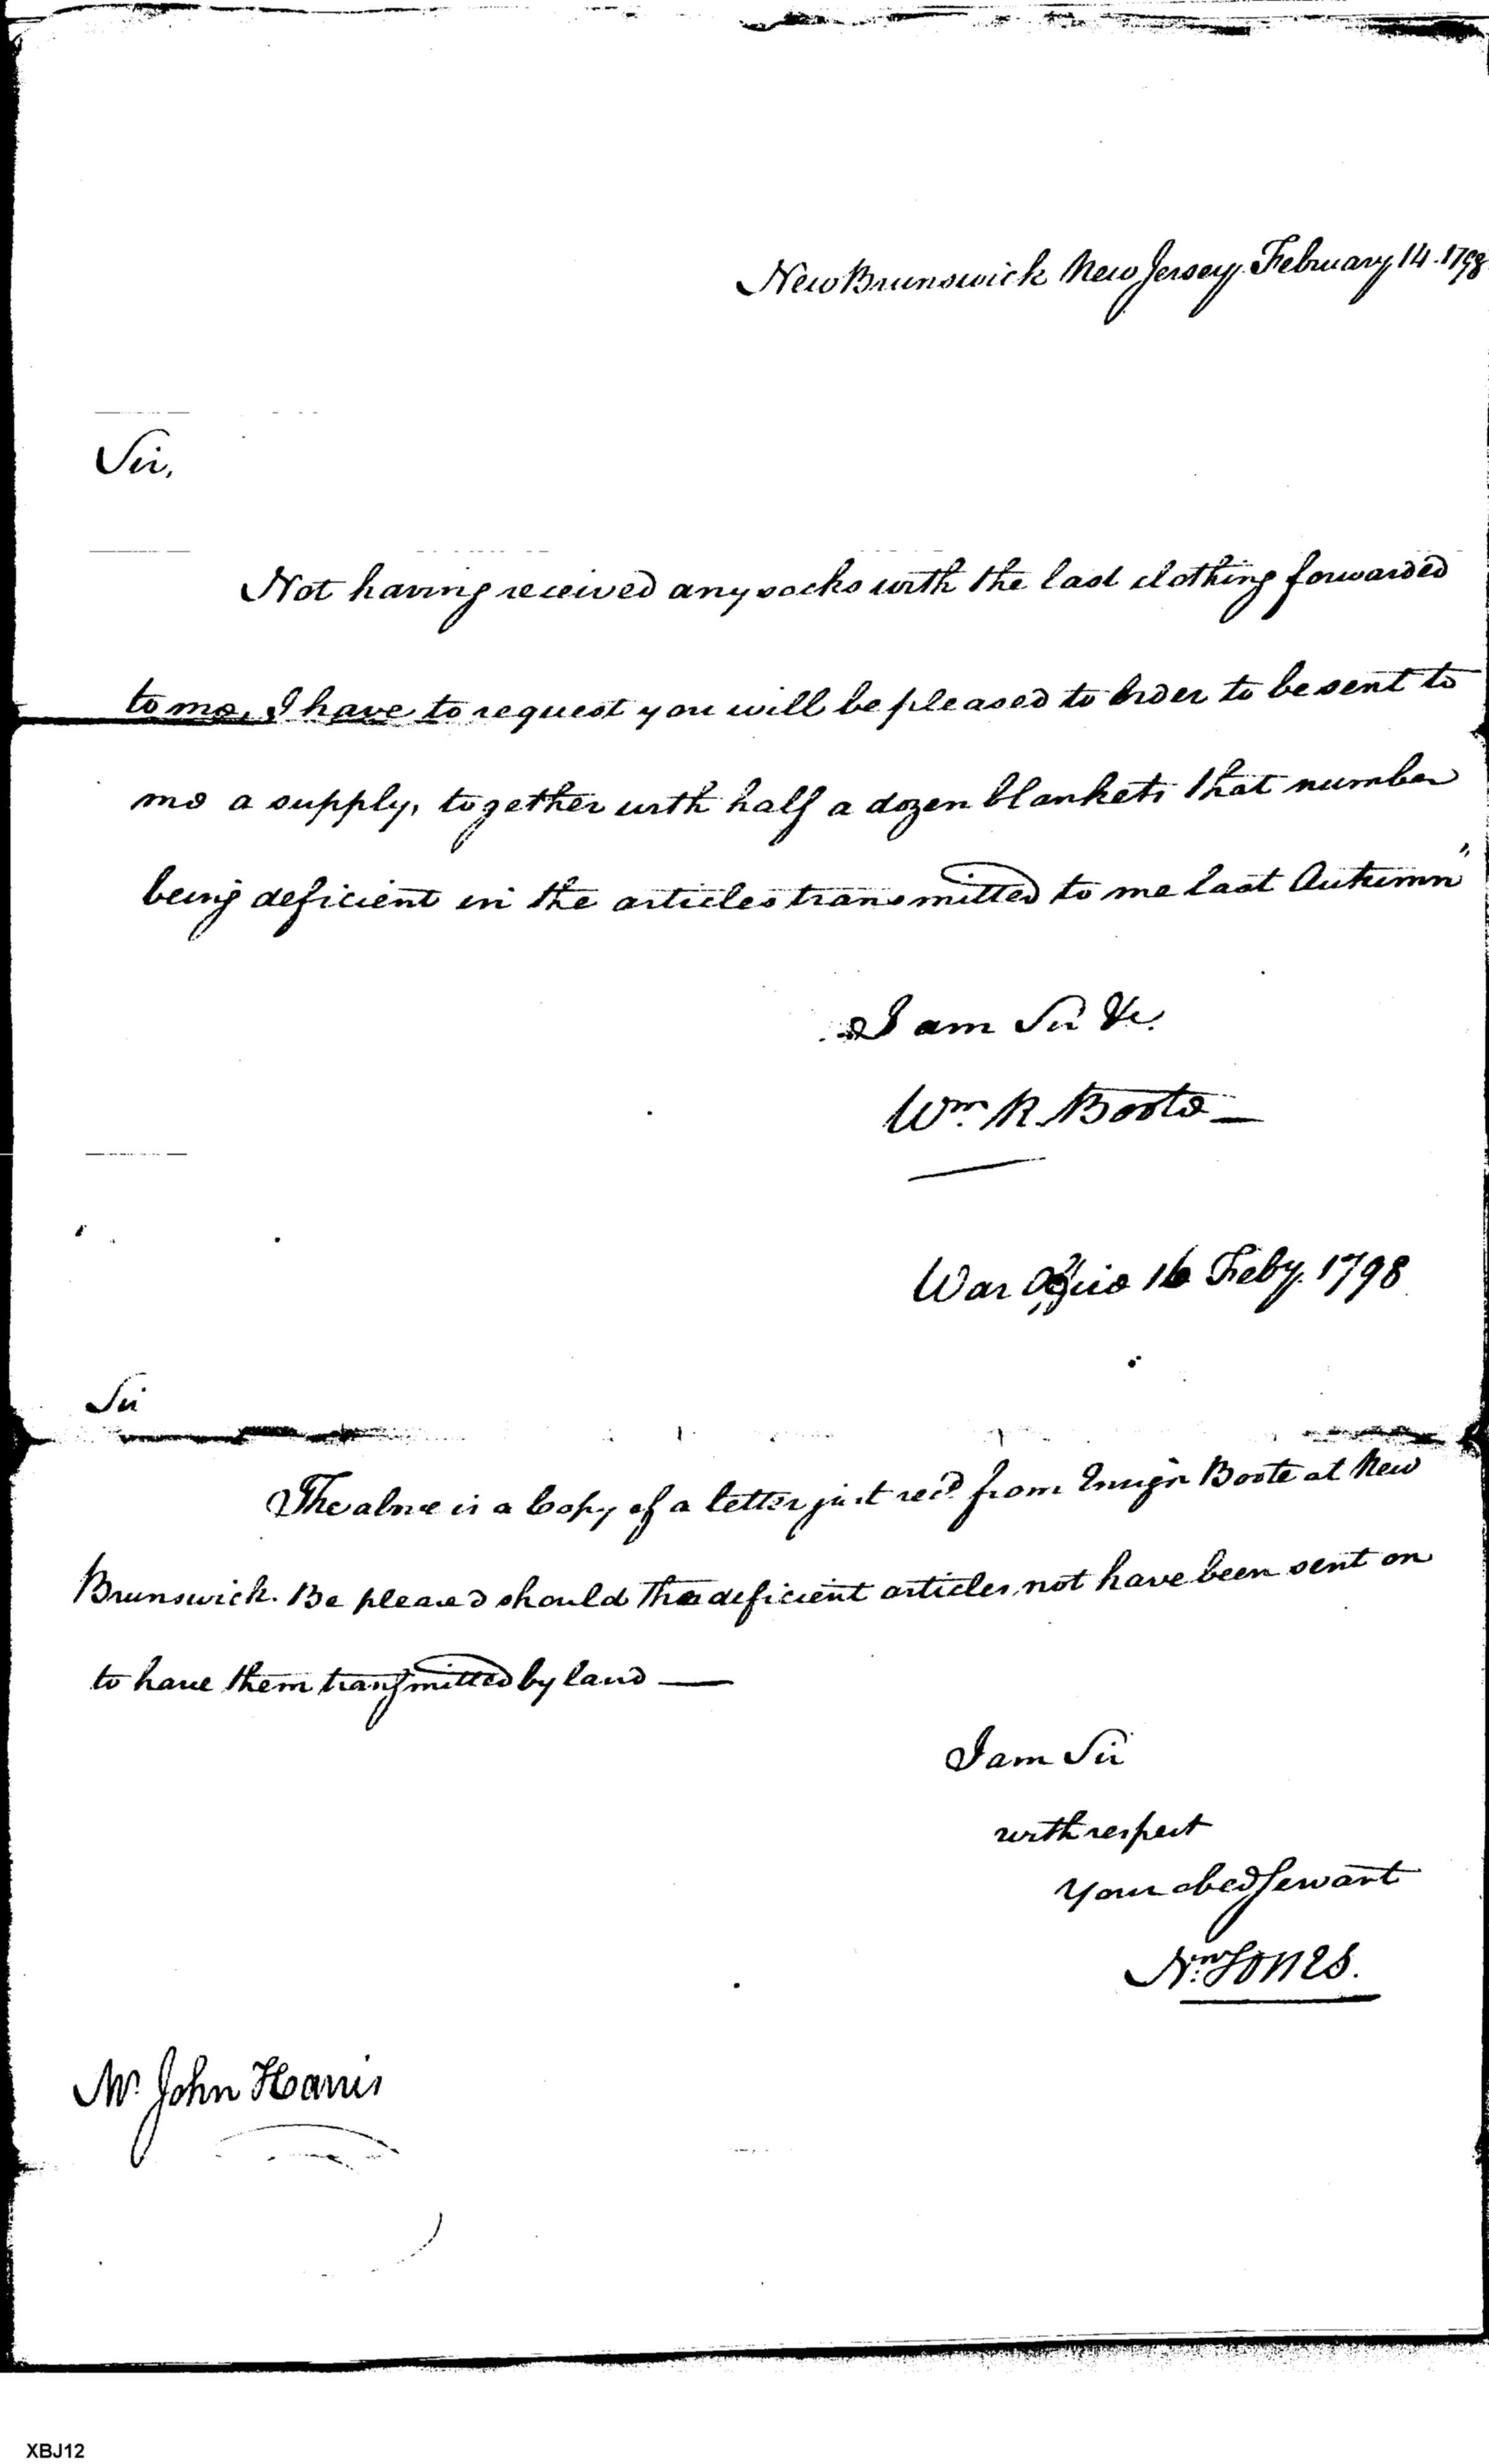 New Brunswick New Jersey February 14. 1798
Sir,
Not having received any socks with the last clothing forwarded
to me, I have to request you will be pleased to order to be sent to
me a supply, together with half a dozen blankets that number
being deficient in the articles transmitted to me last Autumn"
I am Sir &c.
Wm. R. Boote
War Office 16 Feby. 1798
Sir
The above is a Copy of a letter just recd from Ensign Boote at New
Brunswick. Be pleased should the deficient articles not have been sent on
to have them transmitted by land —
I am Sir
with respect
Your obed Servant
Nn. Jones.
Mr. John Harris
XBJ12